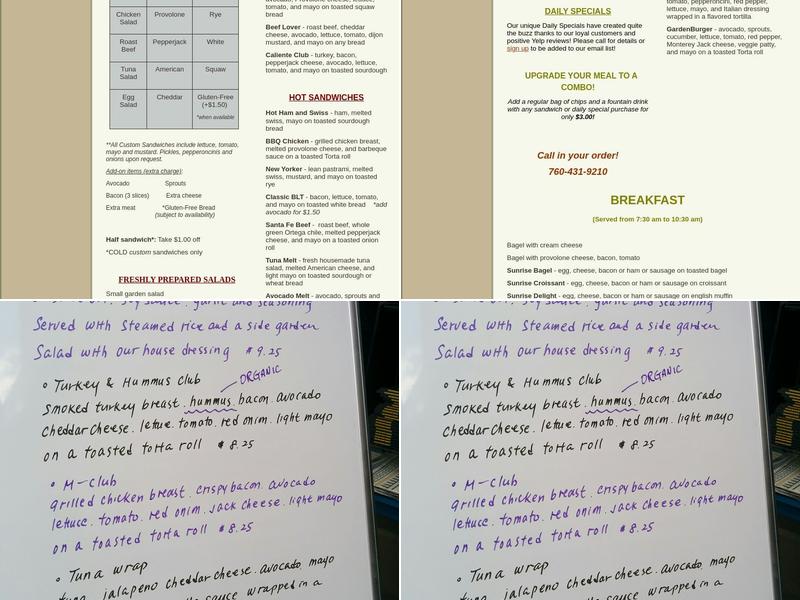 Chicken Salad Provolone Rye
Roast Beef Pepperjack White
Tuna Salad American Squaw
Egg Salad Cheddar Gluten-Free (+$1.50)
*when available
**All Custom Sandwiches include lettuce, tomato,
mayo and mustard. Pickles, pepperoncinis and
onions upon request.
Add-on items (extra charge):
Avocado Sprouts
Bacon (3 slices) Extra cheese
Extra meat *Gluten-Free Bread
(subject to availability)
Half sandwich*: Take $1.00 off
*COLD custom sandwiches only
FRESHLY PREPARED SALADS
Small garden salad
tomato, and mayo on toasted squaw
bread
Beef Lover - roast beef, cheddar
cheese, avocado, lettuce, tomato, dijon
mustard, and mayo on any bread
Caliente Club - turkey, bacon,
pepperjack cheese, avocado, lettuce,
tomato, and mayo on toasted sourdough
HOT SANDWICHES
Hot Ham and Swiss - ham, melted
swiss, and mayo on toasted sourdough
bread
BBQ Chicken - grilled chicken breast,
melted provolone cheese, and barbeque
sauce on a toasted Torta roll
New Yorker - lean pastrami, melted
swiss, mustard, and mayo on toasted
rye
Classic BLT - bacon, lettuce, tomato,
and mayo on toasted white bread *add
avocado for $1.50
Santa Fe Beef - roast beef, whole
green Ortega chile, melted pepperjack
cheese, and mayo on a toasted onion
roll
Tuna Melt - fresh housemade tuna
salad, melted American cheese, and
light mayo on toasted sourdough or
wheat bread
Avocado Melt - avocado, sprouts and
DAILY SPECIALS
Our unique Daily Specials have created quite
the buzz thanks to our loyal customers and
positive Yelp reviews! Please call for details or
sign up to be added to our email list!
UPGRADE YOUR MEAL TO A
COMBO!
Add a regular bag of chips and a fountain drink
with any sandwich or daily special purchase for
only $3.00!
Call in your order!
760-431-9210
tomato, pepperoncini, red pepper,
lettuce, mayo, and Italian dressing
wrapped in a flavored tortilla
GardenBurger - avocado, sprouts,
cucumber, lettuce, tomato, red pepper,
Monterey Jack cheese, veggie patty,
and mayo on a toasted Torta roll
BREAKFAST
(Served from 7:30 am to 10:30 am)
Bagel with cream cheese
Bagel with provolone cheese, bacon, tomato
Sunrise Bagel - egg, cheese, bacon or ham or sausage on toasted bagel
Sunrise Croissant - egg, cheese, bacon or ham or sausage on croissant
Sunrise Delight - egg, cheese, bacon or ham or sausage on english muffin
soy sauce, garlic and seasoning
Served with Steamed rice and a side garden
Salad with our house dressing $9.25
• Turkey & Hummus club ORGANIC
smoked turkey breast. hummus. bacon. avocado
cheddar cheese. lettuc. tomato. red onim. light mayo
on a toasted torta roll $8.25
• M-Club
grilled chicken breast. crispy bacon. avocado
lettuce. tomato. red onim. jack cheese. light mayo
on a toasted torta roll $8.25
• Tuna wrap
tuna, jalapeno cheddar cheese. avocado. mayo
sauce wrapped in a
soy sauce, garlic and seasoning
Served with Steamed rice and a side garden
Salad with our house dressing $9.25
• Turkey & Hummus club ORGANIC
smoked turkey breast. hummus. bacon. avocado
cheddar cheese. lettuc. tomato. red onim. light mayo
on a toasted torta roll $8.25
• M-Club
grilled chicken breast. crispy bacon. avocado
lettuce. tomato. red onim. jack cheese. light mayo
on a toasted torta roll $8.25
• Tuna wrap
tuna, jalapeno cheddar cheese. avocado. mayo
sauce wrapped in a